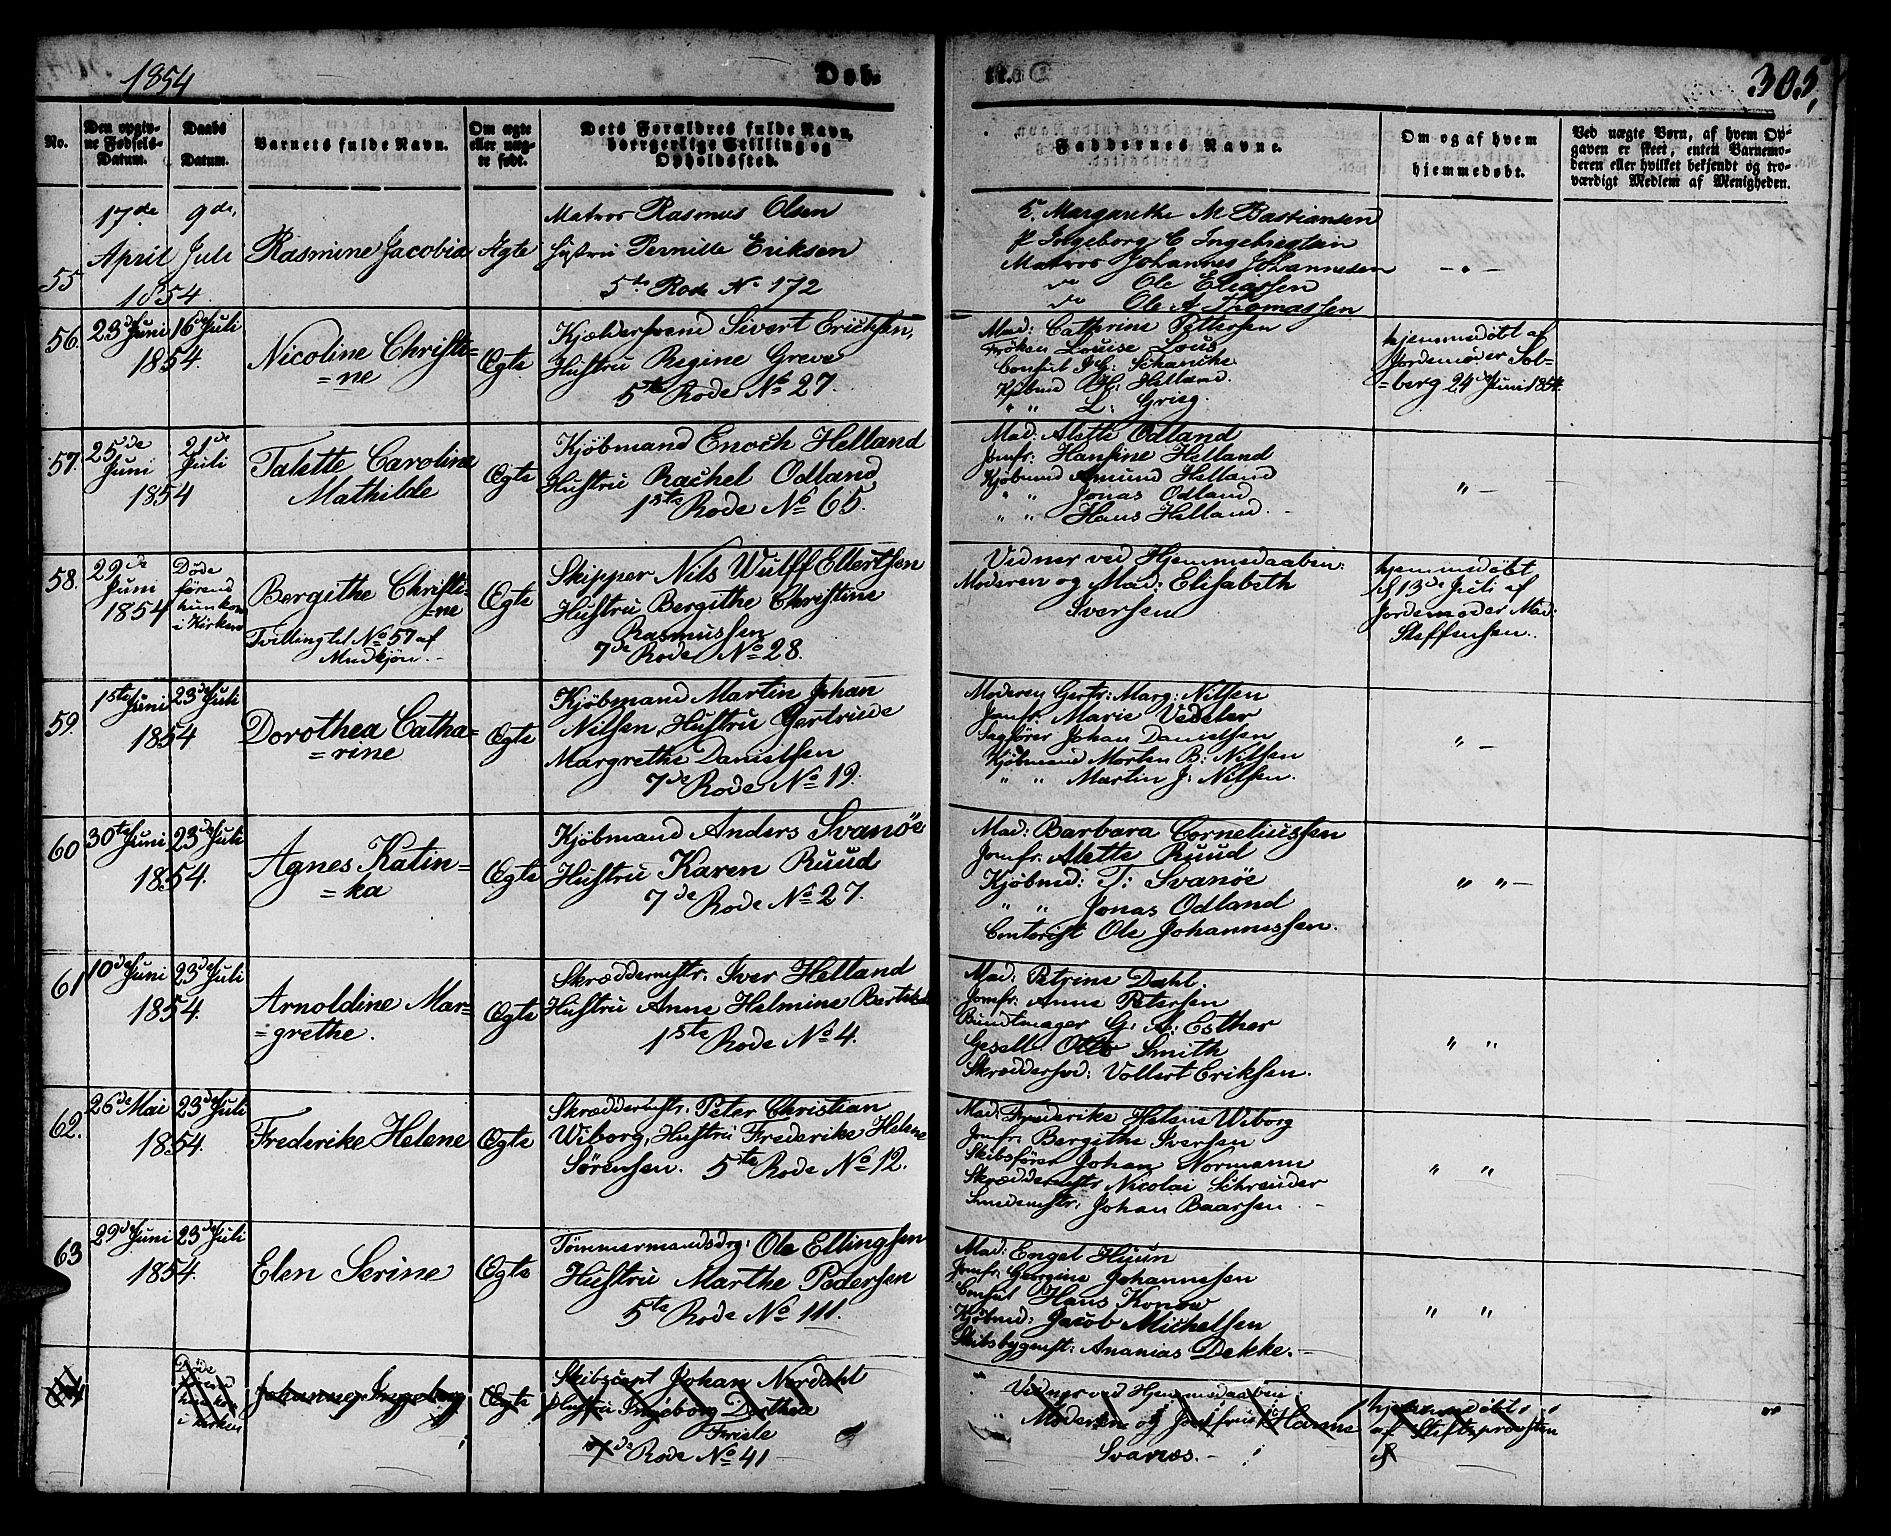 1854
Døb-
te.
305,
No.
Den opgiv-
ne Fødsels-
Datum.
Daabs
Datum.
Barnets fulde Navn.
Om ægte
eller uæg-
te født.
Dets Forældres fulde Navn,
borgerlige Stilling og
Opholdssted.
Faddernes Navne.
Om og af hvem
hjemmedøbt.
Ved uægte Børn, af hvem Op-
gaven er skeet, enten Barnemo-
deren eller hvilket bekjendt og tro-
værdigt Medlem af Menigheden.
55
17de
April
1854.
9de,
Juli
Rasmine Jacobia
Ægte
Matros Rasmus Olsen
Hustru Pernille Eriksen
5te Rode No 172
Margarethe M Bastiansen
P Ingeborg C Ingebrigtsen
Matros Johannes Johannesen
do Ole Eliassen
do Ole A Thomassen
56.
23de Juni
1854.
16de Juli
Nicoline Christi-
=ne
Ægte
Kjældersvend Sivert Ericksen,
Hustru Regine Greve
5te Rode No 27.
Mad: Cathrine Pettersen
Frøken Louise Lous
Consul J. G: Schancke
Kjøbmd H: Helland.
" " L: Grieg.
hjemmedøbt af
Jordemoder Sol-
=berg 24de Juni 1854.
57.
25de
Juni
1854
21de
Juli
Talette Caroline
Mathilde
Ægte
Kjøbmand Enoch Helland
Hustru Rachel Odland
1ste Rode No 65.
Mad: Alette Odland
Jomfr: Hansine Helland
Kjøbmnd Amund Helland
" " Jonas Odland
" " Hans Helland. -
" -
58.
29de
Juni
1854
Døde
førend
hun kom
i Kirken
Bergithe Christi-
=ne
Tvilling til No 57 af
Mndkjøn. -
Ægte
Skipper Nils Wulff Ellertsen
Hustru Bergithe Christine
Rasmussen
7de Rode No 28.
Vidner ved Hjemmedaaben:
Moderen og Mad: Elisabeth
Iversen
hjemmedøbt
d. 13de Juli af
Jordemoder Mad:
Steffensen.
59.
1ste Juni
1854
23de Juli
Dorothea Catha-
=rine
Ægte
Kjøbmand Martin Johan
Nilsen, Hustru Gertrude
Margrethe Danielsen
7de Rode No 19.
Moderen Gertr: Marg: Nilsen
Jomfr: Marie Vedeler
Sagfører Johan Danielsen
Kjøbmand Morten B: Nilsen
" " Martin J: Nilsen.
" -
60
30te Juni
1854.
23de Juli
Agnes Katin-
=ka
Ægte
Kjøbmand Anders Svanøe
Hustru Karen Ruud
7de Rode No 27.
Mad: Barbara Corneliussen
Jomfr: Alette Ruud
Kjøbmd: T: Svanøe
" " Jonas Odland
Contorist Ole Johannessen.
" " -
61
10de Juni
1854.
23de Juli
Arnoldine Mar-
=grethe.
Ægte
Skræddermstr. Iver Helland
Hustru Anne Helmine
1ste Rode No 4.
Mad: Petrine Dahl.
Jomfr: Anne Petersen
Bundtmager G: A: Esther
Gesell Smith
Skræddersvd: Vollert Eriksen.
" "
62.
26de Mai
1854.
23de Juli
Frederike Helene
Ægte
Skræddermstr: Peter Christian
Wiborg, Hustru Frederike Helene
Sørensen. 5te Rode No 12.
Mad: Frederike Helene Wiborg
Jomfr: Bergithe Iversen
Skibsfører Johan Normann
Skræddermstr Nicolai Schreuder
Smedemstr: Johan Baarsen. -
" "
63
29de Juni
1854.
23de Juli
Elen Serine
Ægte
Tømmermandsdrg: Ole Ellingsen
Hustru Marthe Pedersen
5te Rode No 111.
Mad: Engel Huun
Jomfr: Georgine Johannessen
Consul Hans Konow
Kjøbmd: Jacob Michelsen
Skibsbygmst: Ananias Dekke. -
" "
Døde
førend
hun kom
i Kirken
Johannes Ingeborg
Ægte
Skibscapt Johan Nordahl
Hustru Ingeborg Dorthea
Friele
7de Rode No 41
Vidner ved Hjemmedaaben
Moderen og Jomfru Hanne
Svanøs. -
hjemmedøbt
af Stiftsprovsten